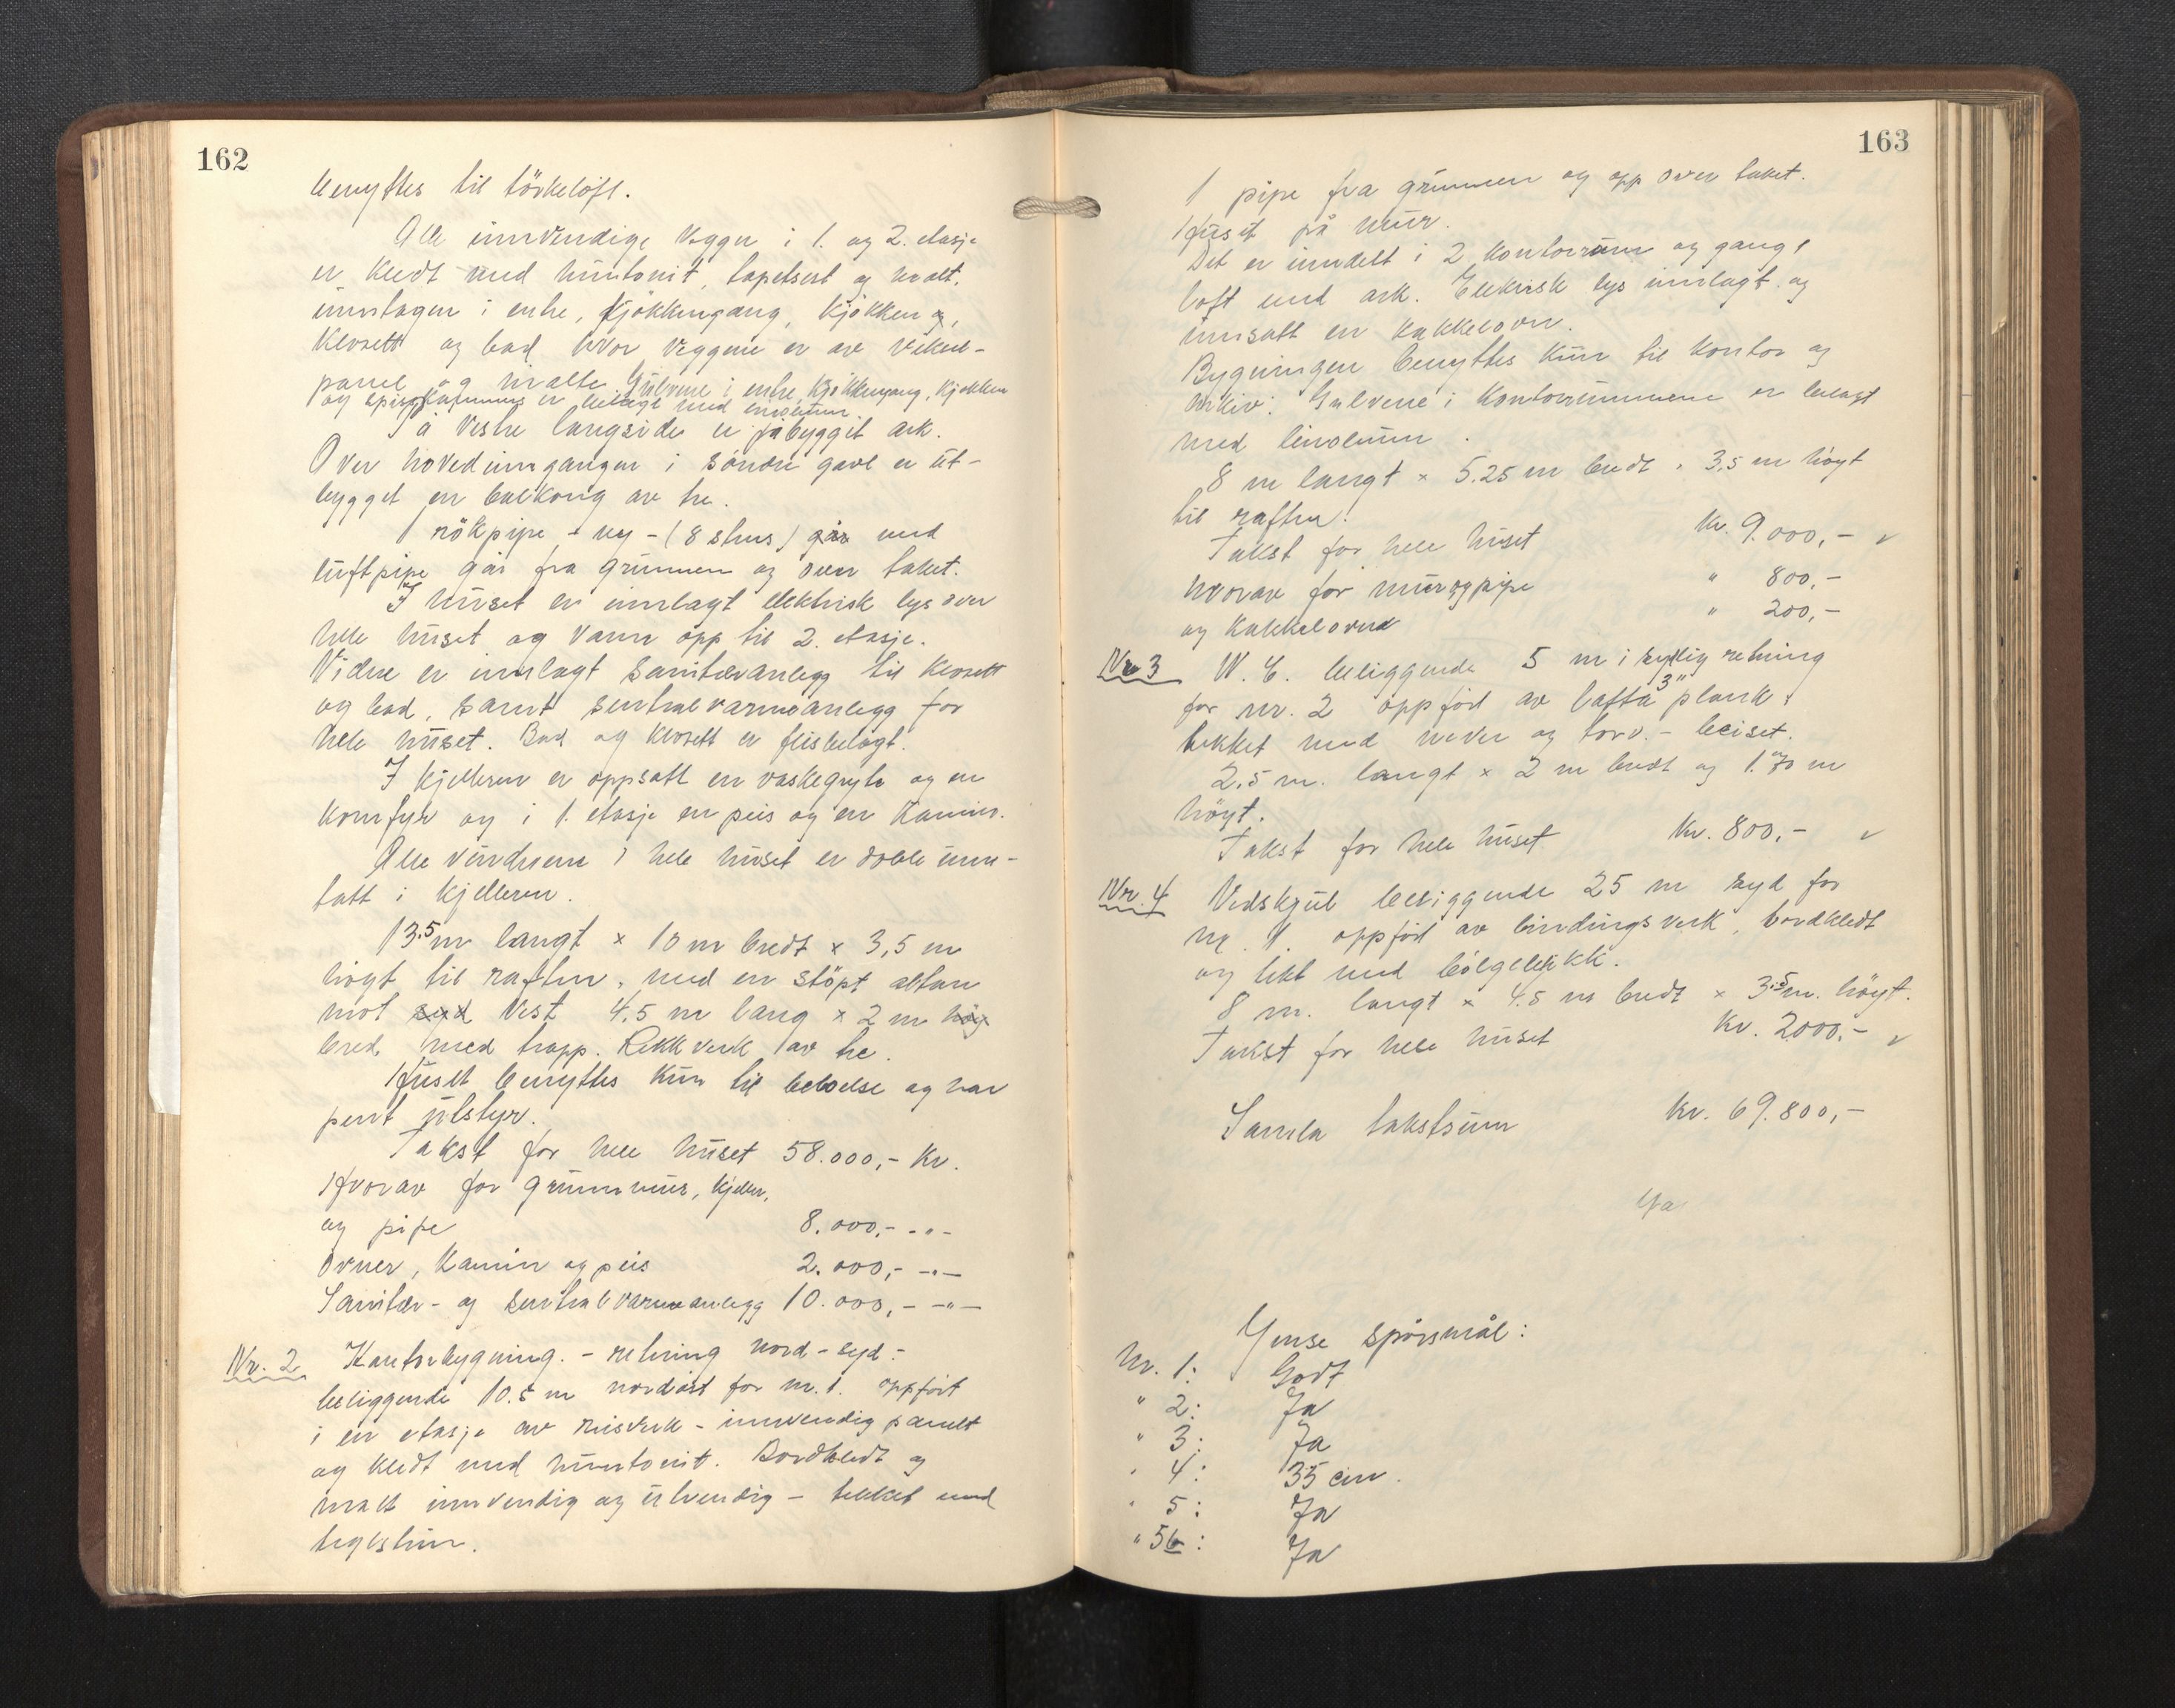 162
benyttes til törkeloft.
Alle innvendige vegger i 1. og 2. etasje
er kledt med huntonit, tapetsert og malt,
unntagen i entre, kjökkengang, kjökken og,
klosett og bad hvor veggene er av veken-
panel og malte. Gulvene i entre, kjökkengang, kjökken
og spisekammer er belagt med linoleum.
På vestre langside er påbygget ark.
Over hovedinngangen i söndre gavl er ut-
bygget en balkong av tre.
1 rökpipe - ny - (8 stens) går med
luftpipe går fra grunnen og over taket.
I huset er innlagt elektrisk lys over
hele huset og vann opp til 2. etasje.
Vidre er innlagt sanitæranlegg til klosett
og bad, samt sentralvarmeanlegg for
hele huset. Bad og klosett er flisbelagt.
I kjelleren er oppsatt en vaskegryte og en
komfyr og i 1. etasje en peis og en kamin.
Alle vinduene i hele huset er doble unn-
tatt i kjelleren.
13.5 m langt × 10 m bredt × 3,5 m
högt til raften, med en stöpt altan
mot syd Vest 4,5 m lang × 2 m hög
bred med trapp. Rekkverk av tre.
Huset benyttes kun til beboelse og har
pent utstyr.
Takst for hele huset 58.000,- Kr.
Hvorav for grunnmur, kjeller,
og pipe 8.000,- -"-
Ovner, kamin og peis 2.000,- -"-
Sanitær- og sentralvarmeanlegg 10.000,- -"-
Nr. 2 Kontorbygning. - retning nord-syd -
beliggende 10.5 m nordöst for nr. 1. oppfört
i en etasje av reisverk - innvendig panelt
og kledt med huntonit. Bordkledt og
malt innvendig og utvendig - tekket med
teglsten.
163
1 pipe fra grunnen og opp over taket.
Huset på mur.
Det er inndelt i 2 kontorrum og gang &
loft med ark. Elektrisk lys innlagt og
innsatt en kakkelovn.
Bygningen benyttes kun til kontor og
arkiv. Gulvene i kontorrummene er belagt
med linoleum.
8 m langt × 5.25 m bredt × 3,5 m höyt
til raften.
Takst for hele huset Kr. 9.000,-
hvorav for mur og pipe " 800,-
og kakkelovn " 200,-
Nr 3 W.C. beliggende 5 m i sydlig retning
for nr. 2 oppfört av lafta 3" plank,
tekket med never og torv. - beiset.
2,5 m. langt × 2 m bredt og 1.70 m
höyt.
Takst for hele huset Kr. 800,-
Nr. 4 Vedskjul beliggende 25 m syd for
nr. 1. oppfört av bindingsverk, bordkledt
og tekt med bölgeblikk.
8 m. langt × 4.5 m bredt × 3.5 m. höyt.
Takst for hele huset Kr. 2000,-
Samla takstsum Kr. 69.800,-
Ymse spörsmål:
Nr. 1: Godt
" 2: Ja
" 3: Ja
" 4: 35 cm.
" 5: Ja
" 5b: Ja